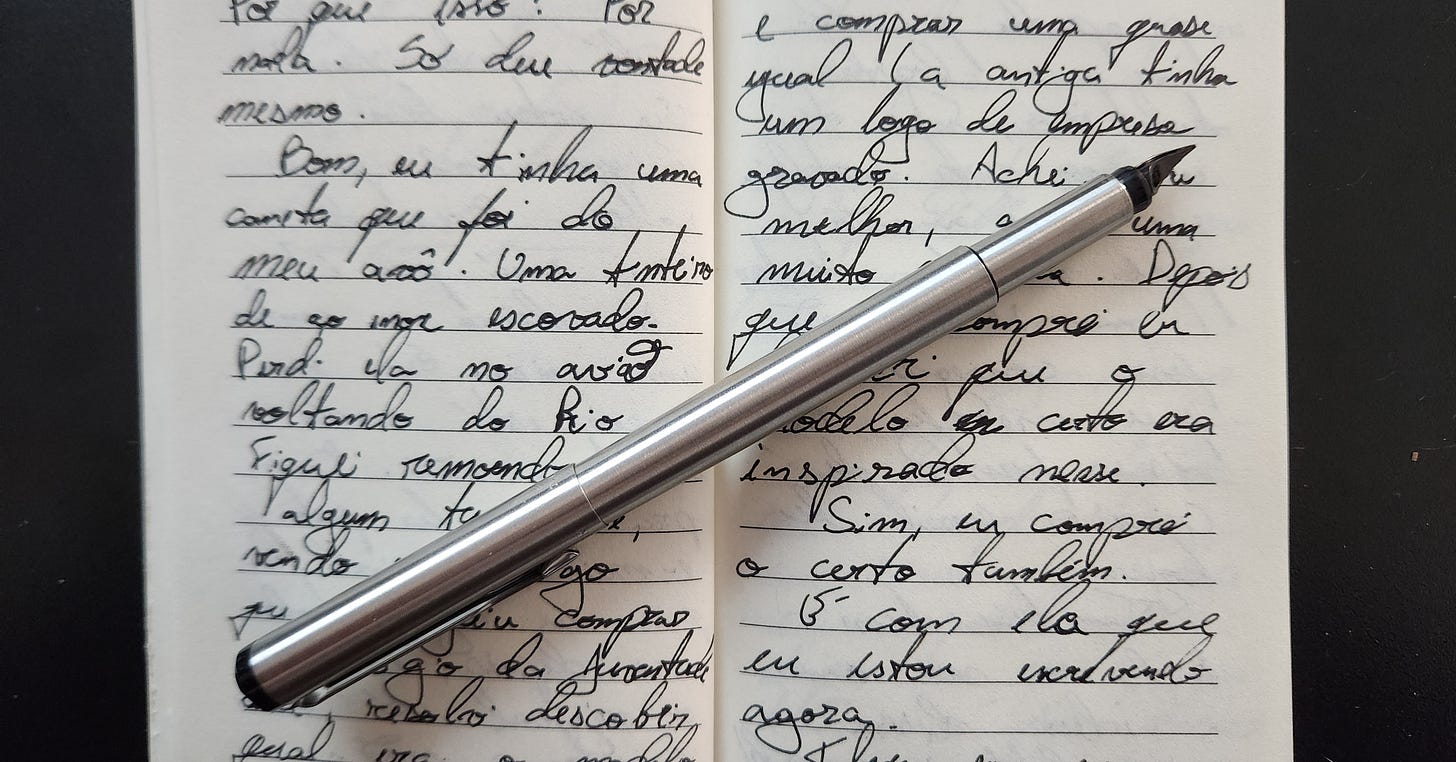 Por que isso? Por
nada. Só deu vontade
mesmo.
Bom, eu tinha uma
caneta que foi do
meu avô. Uma tinteiro
de aço inox escovado.
Perdi ela no avião
voltando do Rio
Fiquei remoendo
algum
vendo
comprar
da Juventude
resolvi descobrir
qual era o modelo
e comprar uma quase
igual (a antiga tinha
um logo de empresa
gravado. Achei
melhor, uma
muito Depois
que comprei eu
que o
modelo certo era
inspirado nesse.
Sim, eu comprei
o certo também.
É com ela que
eu estou escrevendo
agora.